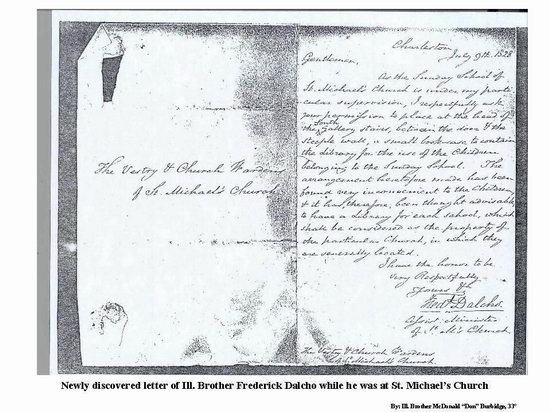 The Vestry & Church Wardens
of St. Michael's Church
Charleston
July 9th. 1828
Gentlemen,
As the Sunday School of
St. Michael's Church is under my parti
cular supervision, I respectfully ask
your permission to place at the head of
the South Gallery stairs, between the door & the
steeple wall, a small bookcase to contain
the Library for the use of the Children
belonging to the Sunday School. The
arrangement heretofore made has been
found very inconvenient to the Children
& it has, therefore, been thought advisable
to have a Library for each school, which
shall be considered as the property of
the particular Church, in which they
are severally located.
I have the honor to be
very Respectfully
Yours &c
Fred Dalcho
Assist. Minister
of St. M's Church
The Vestry & Church Wardens
of St Michael's Church
Newly discovered letter of Ill. Brother Frederick Dalcho while he was at St. Michael's Church
By: Ill. Brother McDonald "Don" Burbidge, 33°